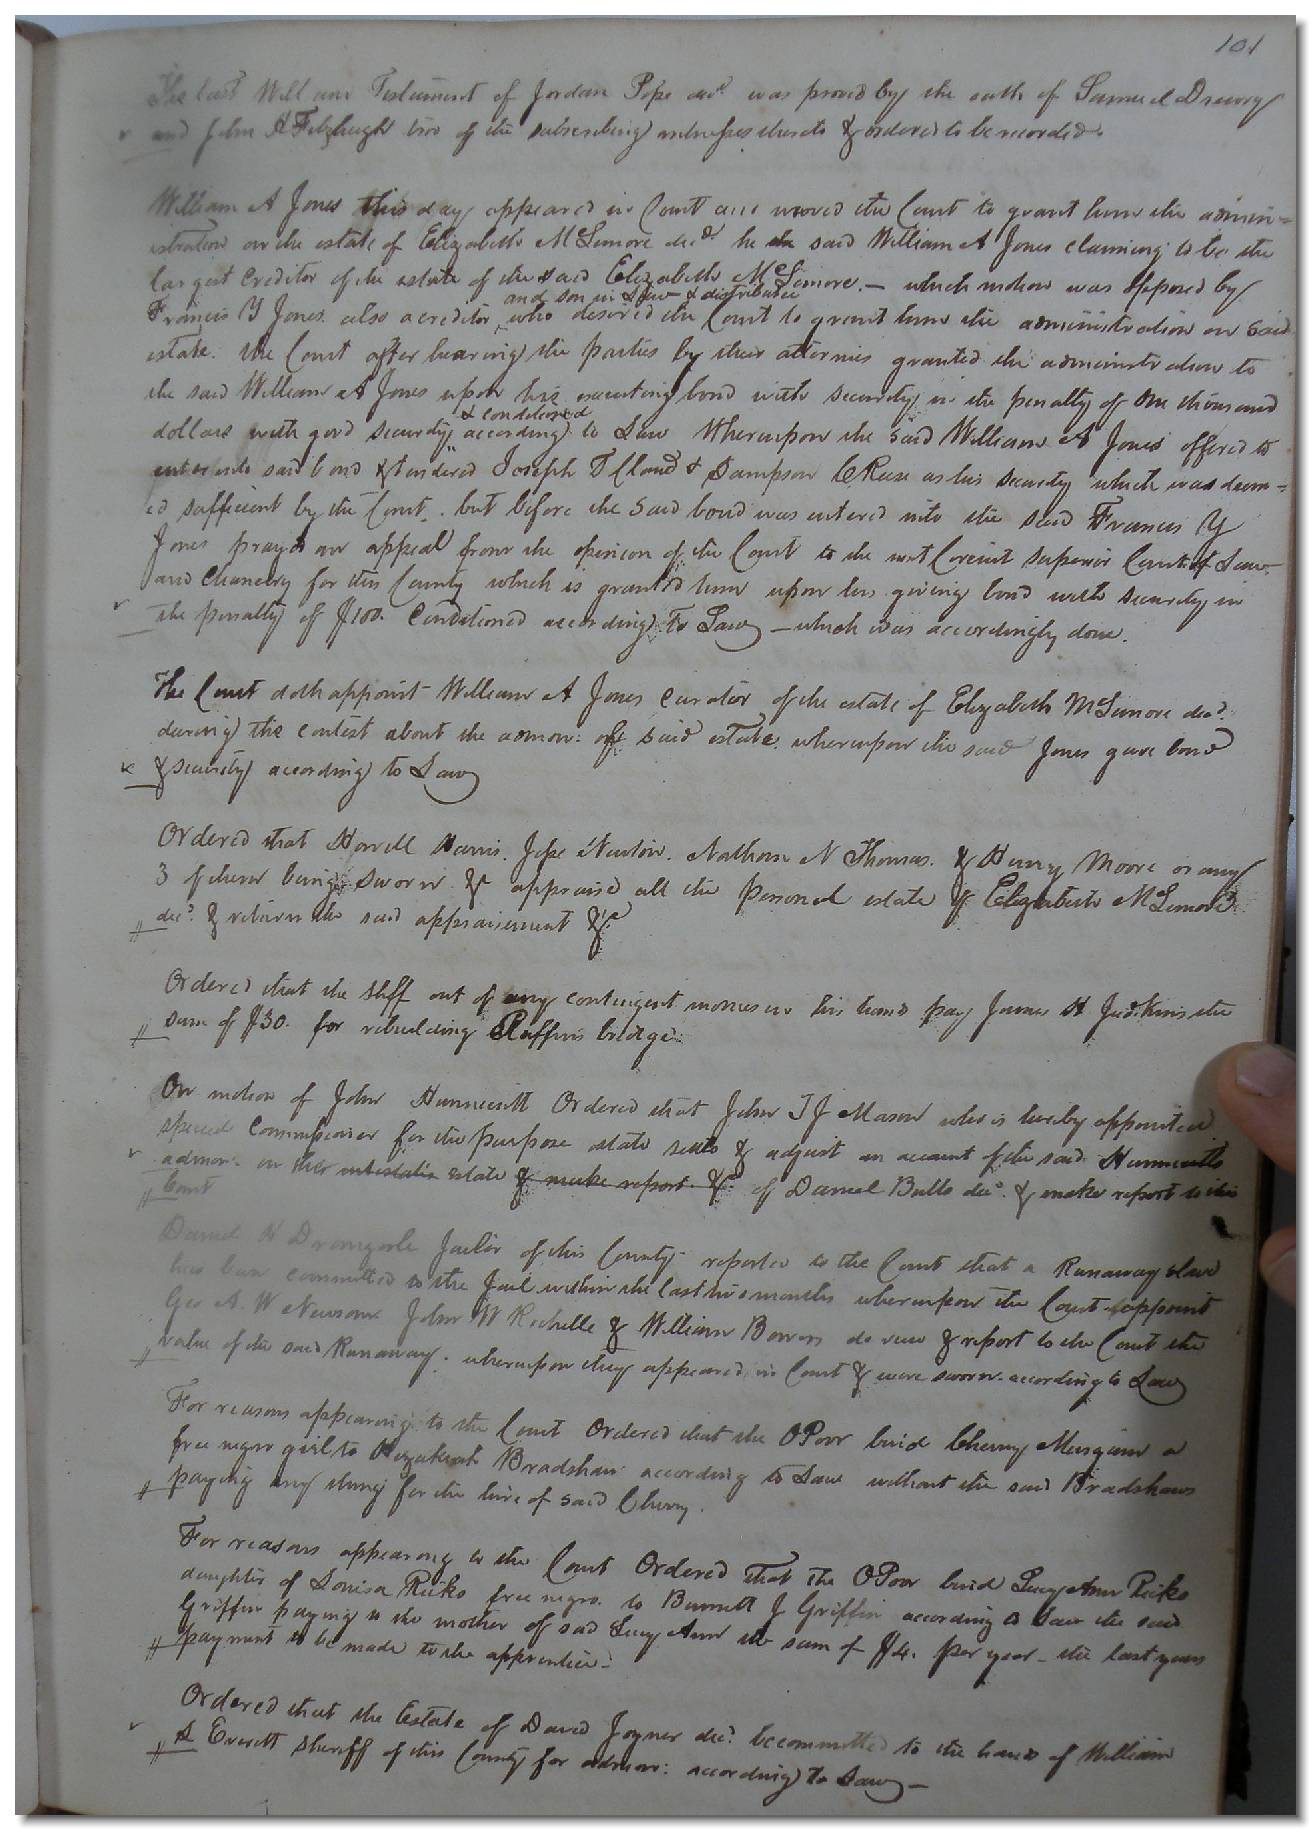 101
The last Will and Testament of Jordan Pope decd was proved by the oath of Samuel Drewry
and John H Fitzhugh two of the subscribing witnesses thereto & ordered to be recorded.
William A Jones this day appeared in Court and moved the Court to grant him the admin=
istration on the estate of Elizabeth McLemore decd. he the said William A Jones claiming to be the
largest Creditor of the estate of the said Elizabeth McLemore. — which motion was opposed by
and son in Law & distributee
Francis Y Jones. also a creditor who desired the Court to grant him the administration on said
estate. the Court after hearing the parties by their attornies granted the administration to
the said William A Jones upon his executing bond with security in the penalty of One thousand
& conditioned
dollars with good security according to Law Whereupon the said William A Jones offered to
enter into said bond & tendered Joseph T Claud & Sampson C Reese as his security which was deem=
ed sufficient by the Court. but before the said bond was entered into the said Francis Y
Jones prayed an appeal from the opinion of the Court to the next Circuit Superior Court of Law
and Chancery for this County which is granted him upon his giving bond with security in
the penalty of $100. Conditioned according to Law — which was accordingly done.
The Court doth appoint William A Jones Curator of the estate of Elizabeth McLemore decd.
during the contest about the admon: of said estate. whereupon the said Jones gave bond
& security according to Law
Ordered that Howell Harris. Jesse Newton. Nathan N Thomas. & Henry Moore or any
3 of them being sworn &c appraise all the personal estate of Elizabeth McLemore
decd. & return the said appraisement &c
Ordered that the Shff out of any contingent monies in his hands pay James H Judkins the
sum of $30. for rebuilding Ruffins bridge.
On motion of John Hunnicutt Ordered that John T J Mason who is hereby appointed
special Commissioner for the purpose state settle & adjust an account of the said Hunnicutts
admon: on the intestates estate & make report &c of Daniel Butts decd. & make report to this
Court
Daniel H Dromgoole Jailor of this County reported to the Court that a Runaway slave
has been committed to the Jail within the last two months whereupon the Court appoint
Geo A. W Newsome John W Rochelle & William Bowers do view & report to the Court the
value of the said Runaway. whereupon they appeared in Court & were sworn according to Law
For reasons appearing to the Court Ordered that the O Poor bind Cherry
a
free negro girl to Hezakiah Bradshaw according to Law without the said Bradshaws
paying any thing for the hire of said Cherry.
For reasons appearing to the Court Ordered that the O Poor bind Lucy Ann Ricks
daughter of Louisa Ricks free negro. to Burnett J Griffin according to Law the said
Griffin paying to the mother of said Lucy Ann the sum of $4. per year — the last years
payment to be made to the apprentice.
Ordered that the Estate of David Joyner decd. be committed to the hands of William
Everett Sheriff of this County for admon: according to Law —